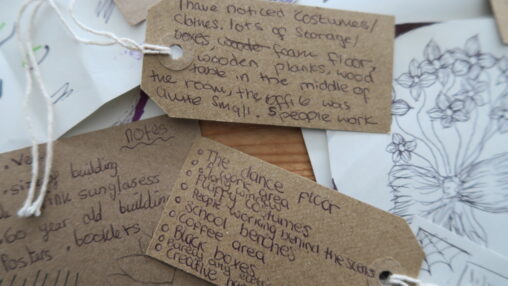 I have noticed costumes/
clothes. lots of storage/
boxes, foam floor,
wooden planks, wood
table in the middle of
the room, the office was
quite small. 5 people work
Notes
building
pink sunglasess
60 year old building
Posters. booklets
The dance floor
area
Fluffy costumes
People working behind the scenes
School benches
Coffee area
Black boxes
creative